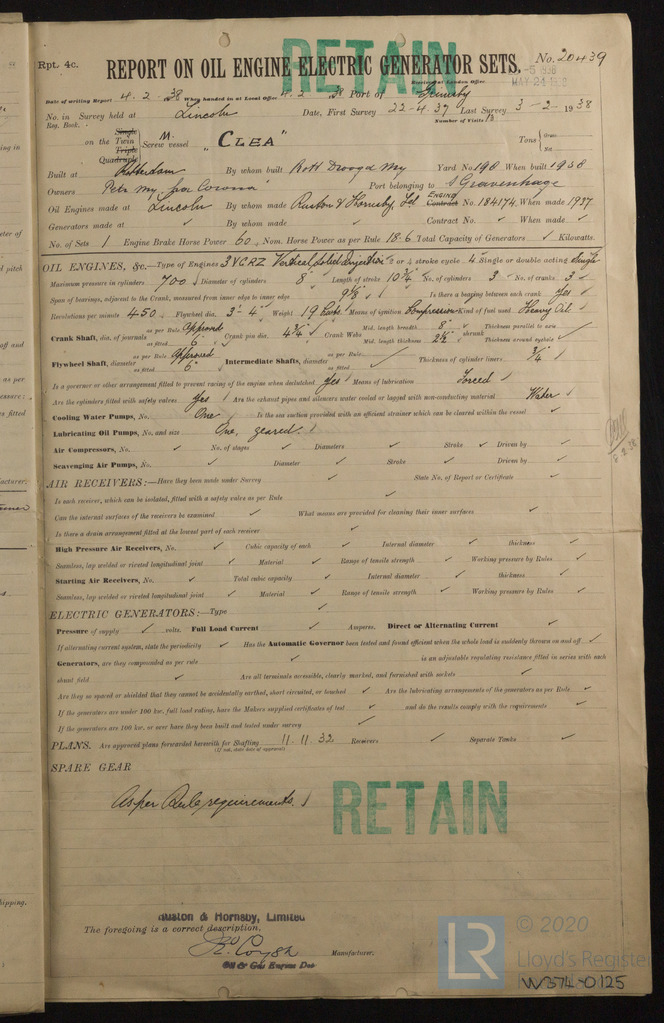 Rpt. 4c.
RETAIN
REPORT ON OIL ENGINE ELECTRIC GENERATOR SETS.
No. 20439
Received at London Office MAY 24 1938
Date of writing Report 4.2.38 When handed in at Local Office 4.2.38 Port of Grimsby
No. in Reg. Book. Survey held at Lincoln Date, First Survey 22-4-37 Last Survey 3-2-1938
Number of Visits 18
on the Single Twin Triple Quadruple Screw vessel M. "CLEA" Tons Gross Net
Built at Rotterdam By whom built Rott Droogd My Yard No. 198 When built 1938
Owners Petr. My. "Corona" Port belonging to S Gravenhage
Oil Engines made at Lincoln By whom made Ruston & Hornsby, Ltd Engine Contract No. 184174 When made 1937
Generators made at ✓ By whom made ✓ Contract No. ✓ When made ✓
No. of Sets 1 Engine Brake Horse Power 60 Nom. Horse Power as per Rule 18.6 Total Capacity of Generators ✓ Kilowatts.
OIL ENGINES, &c.—Type of Engines 3VCRZ Vertical Solid Injection 2 or 4 stroke cycle 4 Single or double acting Single
Maximum pressure in cylinders 700 Diameter of cylinders 8" Length of stroke 10¾" No. of cylinders 3 No. of cranks 3
Span of bearings, adjacent to the Crank, measured from inner edge to inner edge 9⅛" Is there a bearing between each crank Yes
Revolutions per minute 450 Flywheel dia. 3'-4" Weight 19 cwts Means of ignition Compression Kind of fuel used Heavy Oil
Crank Shaft, dia. of journals as per Rule Approved as fitted 6" Crank pin dia. 4¾" Crank Webs Mid. length breadth 8" Mid. length thickness 2½" shrunk Thickness parallel to axis Thickness around eyehole
Flywheel Shaft, diameter as per Rule Approved as fitted 6" Intermediate Shafts, diameter as per Rule as fitted ✓ Thickness of cylinder liners ¾"
Is a governor or other arrangement fitted to prevent racing of the engine when declutched Yes Means of lubrication Forced
Are the cylinders fitted with safety valves Yes Are the exhaust pipes and silencers water cooled or lagged with non-conducting material Water
Cooling Water Pumps, No. One Is the sea suction provided with an efficient strainer which can be cleared within the vessel ✓
Lubricating Oil Pumps, No. and size One, geared
Air Compressors, No. ✓ No. of stages ✓ Diameters ✓ Stroke ✓ Driven by ✓
Scavenging Air Pumps, No. ✓ Diameter ✓ Stroke ✓ Driven by ✓
AIR RECEIVERS:—Have they been made under Survey ✓ State No. of Report or Certificate ✓
Is each receiver, which can be isolated, fitted with a safety valve as per Rule ✓
Can the internal surfaces of the receivers be examined ✓ What means are provided for cleaning their inner surfaces ✓
Is there a drain arrangement fitted at the lowest part of each receiver ✓
High Pressure Air Receivers, No. ✓ Cubic capacity of each ✓ Internal diameter ✓ thickness ✓
Seamless, lap welded or riveted longitudinal joint ✓ Material ✓ Range of tensile strength ✓ Working pressure by Rules ✓
Starting Air Receivers, No. ✓ Total cubic capacity ✓ Internal diameter ✓ thickness ✓
Seamless, lap welded or riveted longitudinal joint ✓ Material ✓ Range of tensile strength ✓ Working pressure by Rules ✓
ELECTRIC GENERATORS:—Type ✓
Pressure of supply ✓ volts. Full Load Current ✓ Amperes. Direct or Alternating Current ✓
If alternating current system, state the periodicity ✓ Has the Automatic Governor been tested and found efficient when the whole load is suddenly thrown on and off ✓
Generators, are they compounded as per rule ✓ is an adjustable regulating resistance fitted in series with each
shunt field ✓ Are all terminals accessible, clearly marked, and furnished with sockets ✓
Are they so spaced or shielded that they cannot be accidentally earthed, short circuited, or touched ✓ Are the lubricating arrangements of the generators as per Rule ✓
If the generators are under 100 kw. full load rating, have the Makers supplied certificates of test ✓ and do the results comply with the requirements ✓
If the generators are 100 kw. or over have they been built and tested under survey ✓
PLANS. Are approved plans forwarded herewith for Shafting 11.11.32 Receivers ✓ Separate Tanks ✓
(If not, state date of approval)
SPARE GEAR
As per Rule requirements.
RETAIN
Ruston & Hornsby, Limited
The foregoing is a correct description,
Manufacturer.
Oil & Gas Engine Dep
LR
© 2020
Lloyd's Register
W374-0125